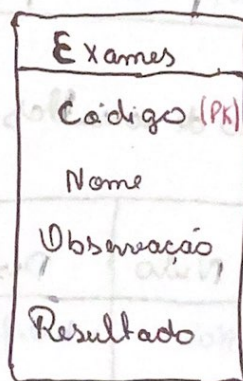 Exames
Código (PK)
Nome
Observação
Resultado